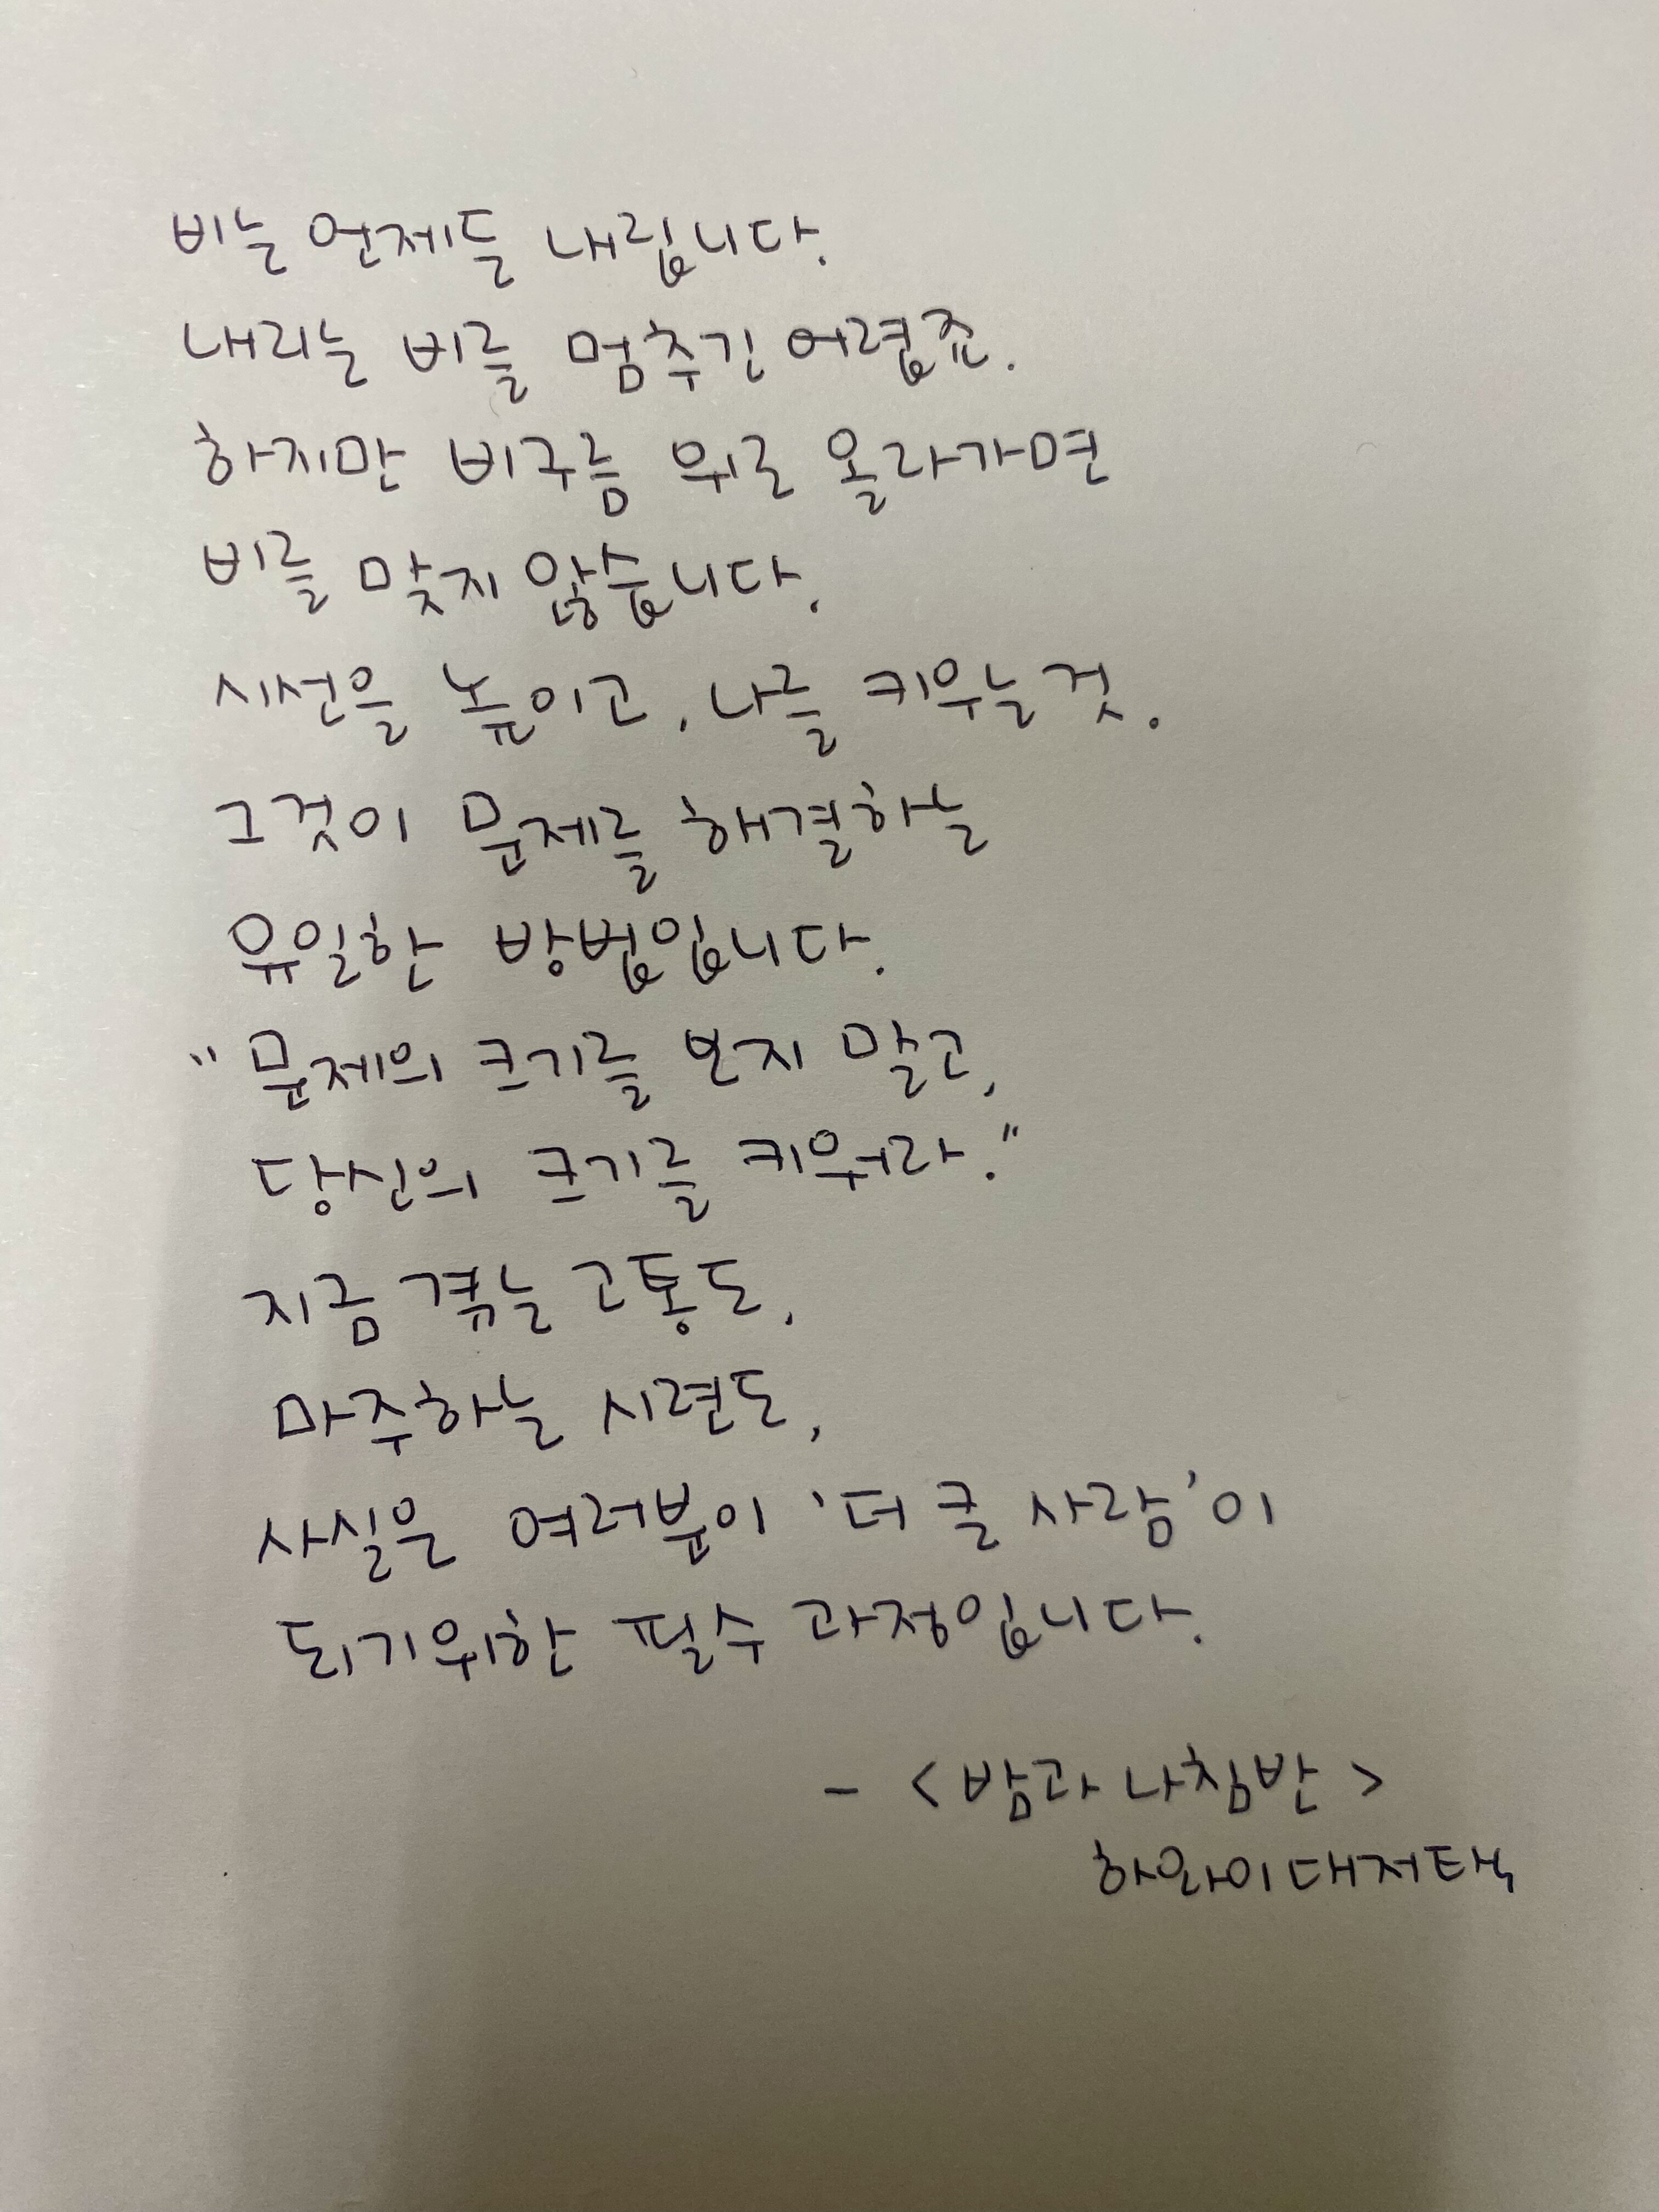 비는 언제든 내립니다.
내리는 비를 멈추긴 어렵죠.
하지만 비구름 위로 올라가면
비를 맞지 않습니다.
시선을 높이고, 나를 키우는 것.
그것이 문제를 해결하는
유일한 방법입니다.
"문제의 크기를 보지 말고,
당신의 크기를 키워라."
지금 겪는 고통도,
마주하는 시련도,
사실은 여러분이 '더 큰 사람'이
되기위한 필수 과정입니다.
- <밤과 나침반>
하와이대저택